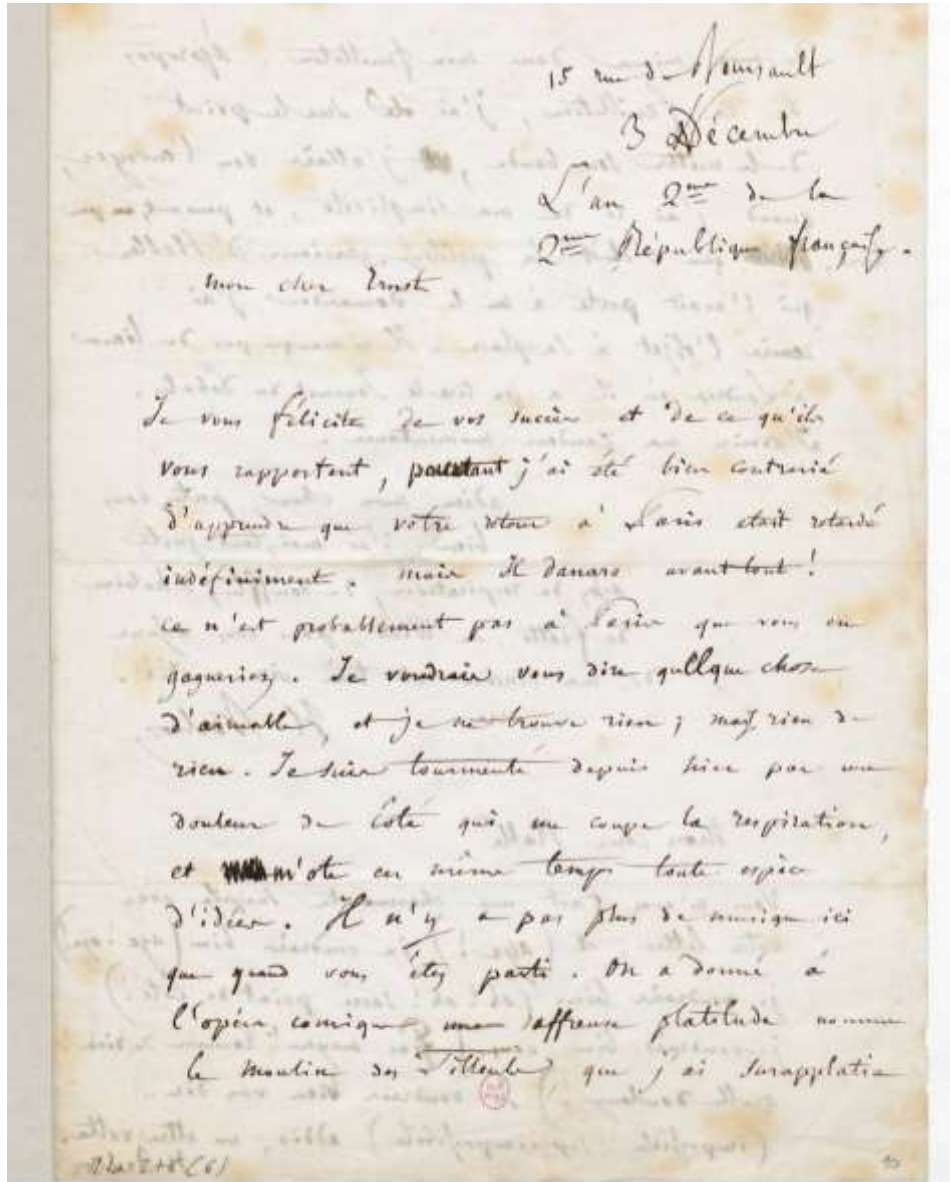 15 rue de
3 Décembre
L'an 2me de la
2me République française.
mon cher Ernst
Je vous félicite de vos succès et de ce qu'ils
vous rapportent, pourtant j'ai été bien contrarié
d'apprendre que votre retour à Paris était retardé
indéfiniment. mais Il danaro avant tout!
ce n'est probablement pas à Paris que vous en
gagneriez. Je voudrais vous dire quelque chose
d'aimable, et je ne trouve rien; mais rien de
rien. Je suis tourmenté depuis hier par une
douleur de Coté qui me coupe la respiration,
et m'ote en même temps toute espèce
d'idées. Il n'y a pas plus de musique ici
que quand vous êtes parti. On a donné à
l'opéra comique une affreuse platitude nommée
le moulin des Tilleuls que j'ai surapplatie